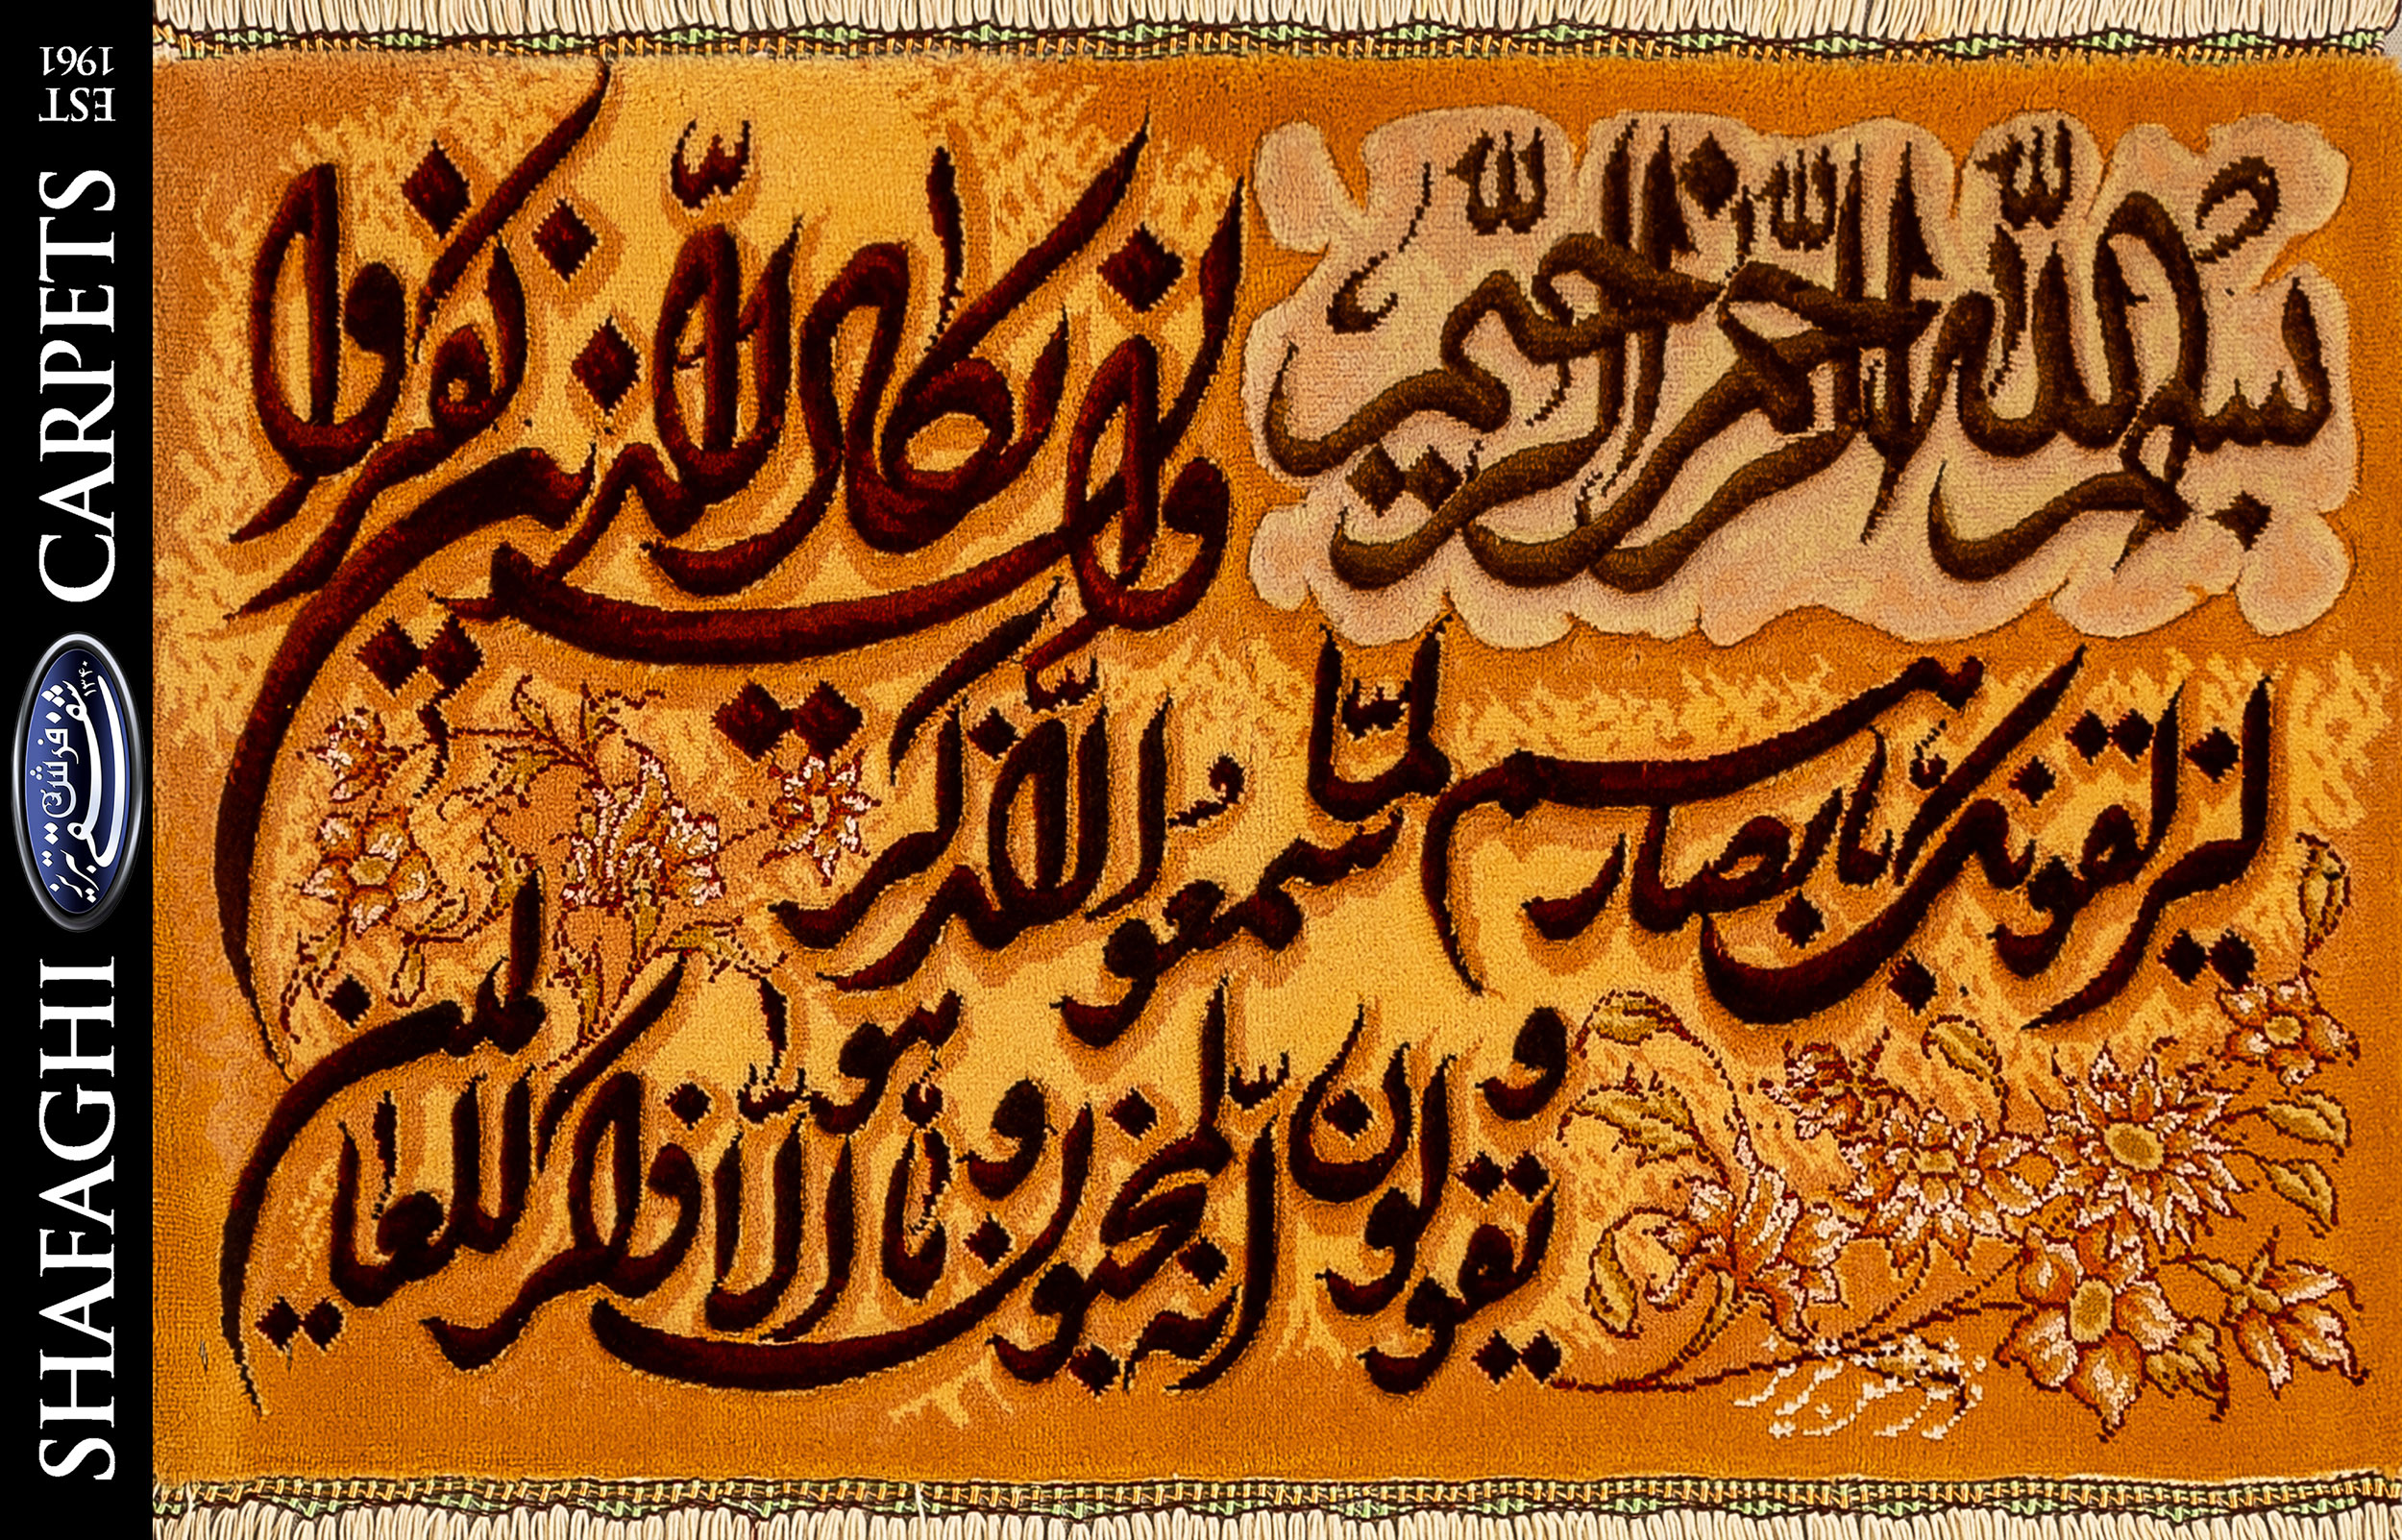 بسم الله الرحمن الرحیم
وان یکاد الذین کفروا
لیزلقونک بابصارهم لما سمعوا الذکر
و یقولون انه لمجنون و ما هو الا ذکر للعالمین
SHAFAGHI CARPETS
EST
1961
شفقی
فرش تبریز
۱۳۴۰